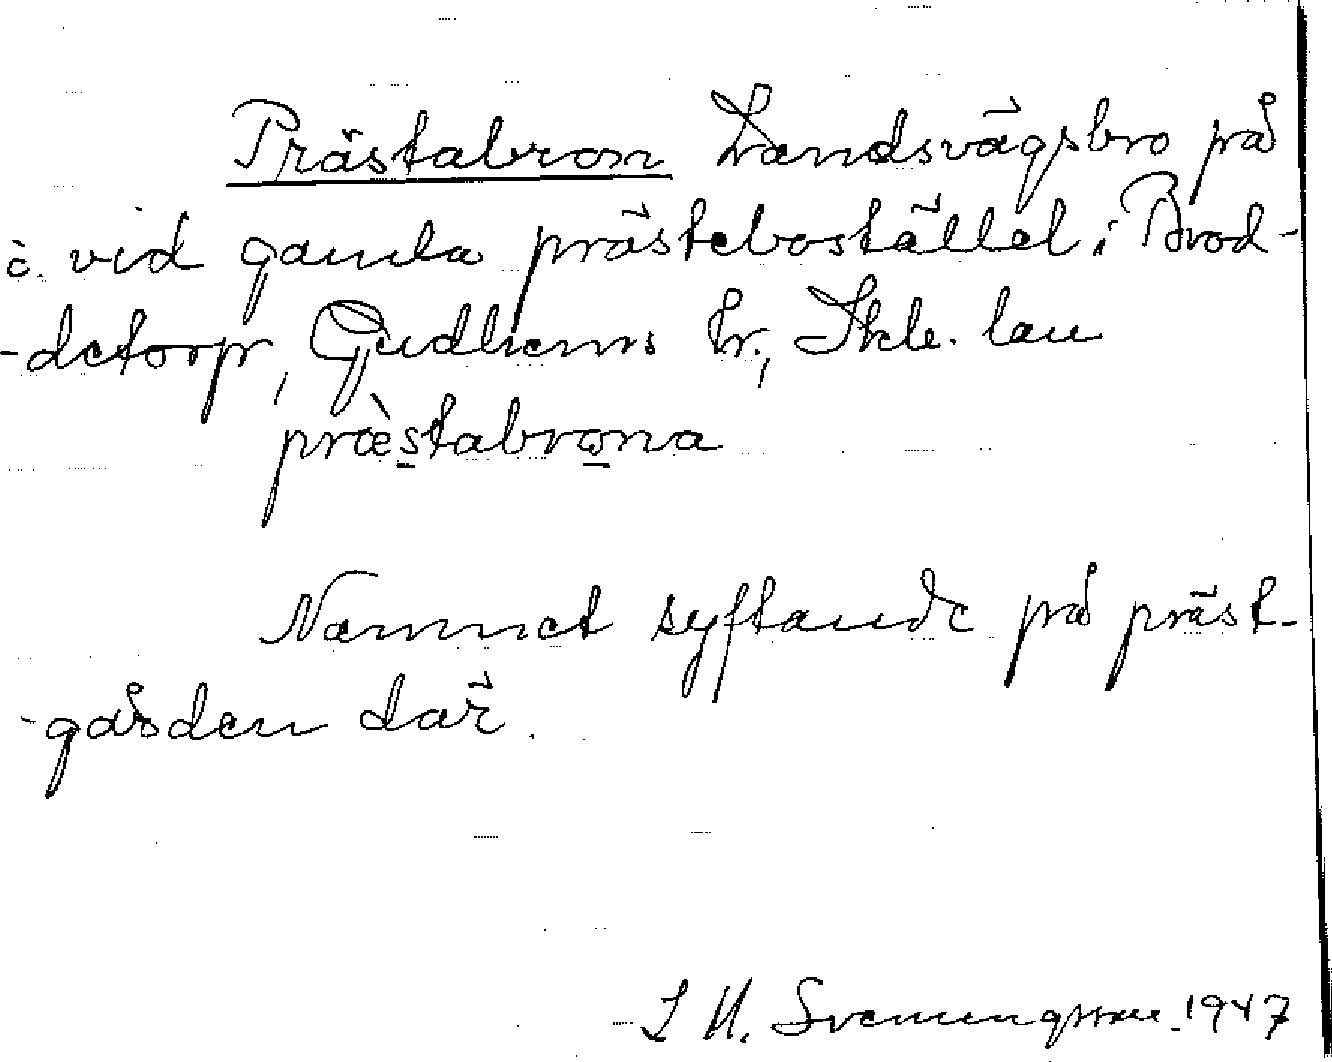 Prästabron Landsvägsbro på
å vid gamla prästebostället i Brod-
-detorp, Gudhems hr, Skb. län
præstabrona
Namnet syftande på präst-
-gården där.
Svenungsson 1947